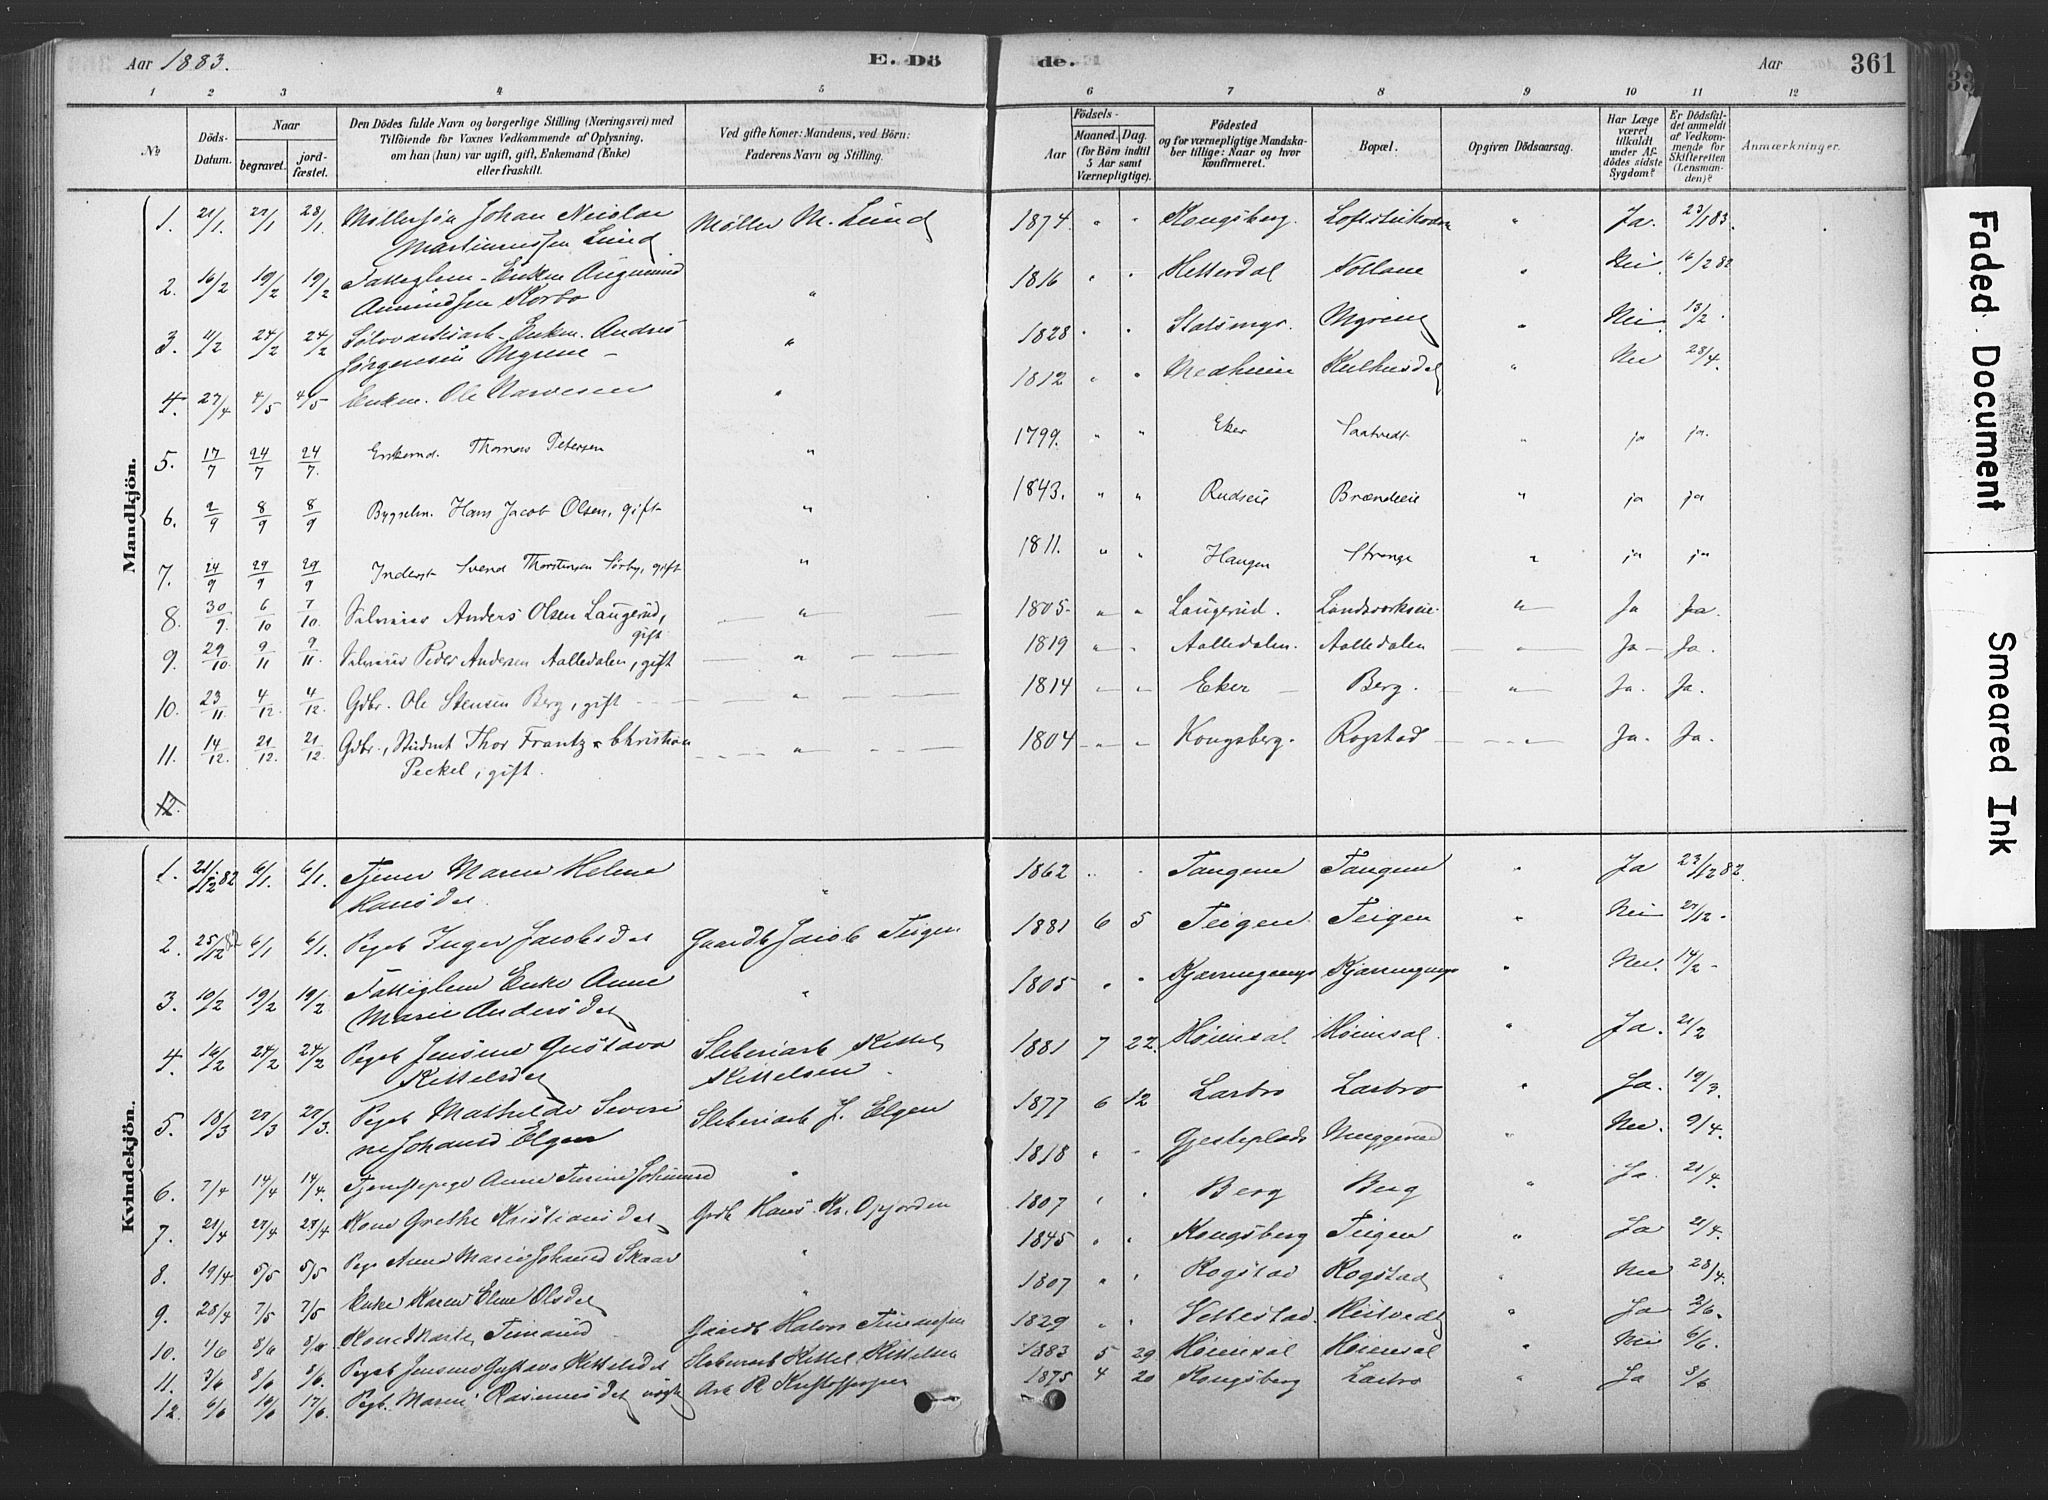 Aar 1883.
E. Dö
de.
Aar
361
33
1 2 3 4 5
6 7 8 9 10 11 12
No
Döds-
Datum.
Naar
begravet.
jord-
fæstet.
Den Dödes fulde Navn og borgerlige Stilling (Næringsvei) med
Tilföiende for Voxnes Vedkommende af Oplysning,
om han (hun) var ugift, gift, Enkemand (Enke)
eller fraskilt.
Ved gifte Koner: Mandens, ved Börn:
Faderens Navn og Stilling.
Födsels-
Aar
Maaned. Dag.
(for Börn indtil
5 Aar samt
Værnepligtige).
Födested
og for værnepligtige Mandska-
ber tillige: Naar og hvor
konfirmeret.
Bopæl.
Opgiven Dödsaarsag.
Har Læge
været
tilkaldt
under Af-
dödes sidste
Sygdom?
Er Dödsfal-
det anmeldt
af Vedkom-
mende for
Skifteretten
(Lensman-
den)?
Anmærkninger.
Mandkjön.
1. 21/1. 27/1 28/1. Møllersøn Johan Nicolai Møller M. Lund 1874 " " Kongsberg. " Ja. 23/1 83.
Martinnessen Lund
2. 16/2 19/2 19/2 Fattiglem - Enkm " 1816 " " Hitterdal " Nei. 16/2 82
Amundsen Korbo
3. 11/2 24/2 24/2 Sølvværksarb - Enkm. Andres " 1828 " " Myrene " Nei. 13/2.
Jörgensen Myrene -
4. 27/4 4/5 4/5 Enkm. Ole " 1812 " " Medheim " Nei 28/4.
5. 17/7 24/7 24/7. Enkemd. Thomas Petersen " 1799. " " Eker Saatvedt " ja ja.
6. 2/9 8/9 8/9 Bygselm. Hans Jacob Olsen, gift " 1843. " " Rudseie Brændeeie " ja ja
7. 24/9 29/9 29/9 Inderst Svend Thorstensen Sørby, gift " 1811. " " Haugen Strange " ja ja
8. 30/9. 6/10 7/10. Anders Olsen Laugerud, gift " 1805. " " Laugerud. Landsværkseie. " Ja Ja.
9. 29/10. 9/11 9/11. Peder Andersen Aalledalen, gift " 1819 " " Aalledalen. Aalledalen " Ja Ja.
10. 23/11. 4/12. 4/12. Gdbr. Ole Stensen Berg, gift " 1814 " " Eker Berg. " Ja. Ja.
11. 14/12. 21/12. 21/12 Gdbr., Student Thor Frantz Christian " 1804 " " Kongsberg. Rogstad " Ja. Ja.
Peckel, gift.
12.
Kvindekjön.
1. 21/12 82 6/1. 6/1. Tjener Maren Helene " 1862 " " Tangene Tangene " Ja 23/12 82.
Hansdat.
2. 25/12 82 6/1 6/1. Pigeb Inger Jacobsdat Gaardb Jacob Teigen 1881 6 5 Teigen Teigen " Nei 27/12.
3. 10/2 19/2 19/2 Fattiglem Enke Anne " 1805 " " " Nei. 14/2
Marie Andersdat
4. 16/2 24/2 24/2 Pigeb Jensine Gustava Sliberiarb Kittel 1881 7 22. Høiensal Høiensal. " Ja. 21/2
Kittelsdat Kittelsen.
5. 18/3 27/3 27/3. Pigeb Mathilde Severi Sliberiarb J. Elgen 1877 6 12 Lasbro Lasbro " Ja. 19/3.
ne Johansd Elgen
6. 7/4 14/4 14/4. Tjenestepige Anne " 1818 " " Gjesteplads " Nei. 9/4.
7. 21/4 27/4 27/4 Kone Grethe Kristiansdat Grdb Hans Kr. Opjorden 1807 " " Berg Berg " Ja. 21/4.
8. 19/4 5/5 5/5 Pige Anne Marie Johansd Skaar " 1845 " " Kongsberg Teigen " Ja 21/4.
9. 28/4 7/5 7/5 Enke Karen Eline Olsdat " 1807 " " Rogstad Rogstad " Nei 28/4.
10. 1/6 8/6 8/6 Kone Marte Gaardb Halvor 1829 " " Vettestad " Ja 2/6.
11. 3/6 8/6 8/6. Pigeb Jensine Gustava Kittelsdat Sliberiarb Kittel Kittelsen 1883 5 29 Høiensal Høiensal " Nei 6/6.
12. 6/6 10/6 17/6. Pigb. Marie Rasmusdat Arb R Kristoffersen 1875 4 20 Kongsberg Lasbro " Ja 8/6
Faded Document
Smeared Ink